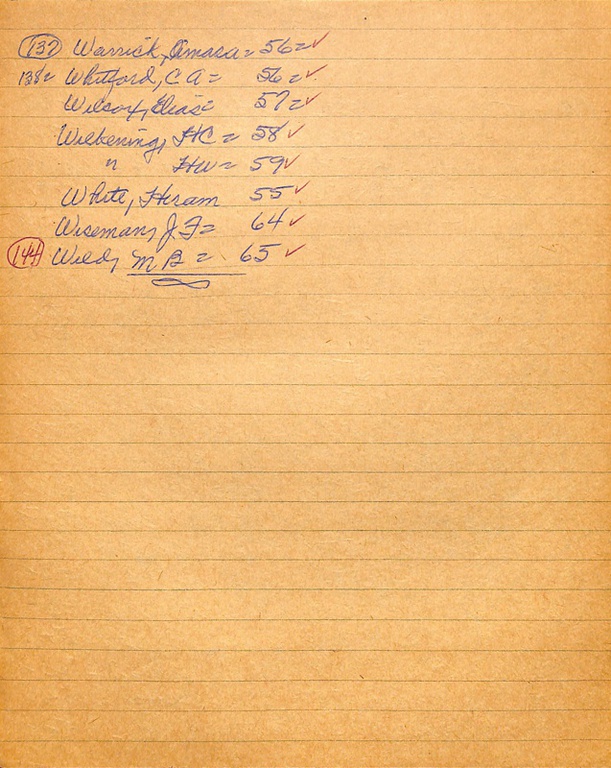 137 Warrick, Amasa = 56 = ✓
138 = Whitford, C A = 56 = ✓
Wilcox, Elias = 57 = ✓
Wilbening, HC = 58 ✓
" HW = 59 ✓
White, Hiram 55 ✓
Wiseman, J F = 64 ✓
144 Wild, M B = 65 ✓